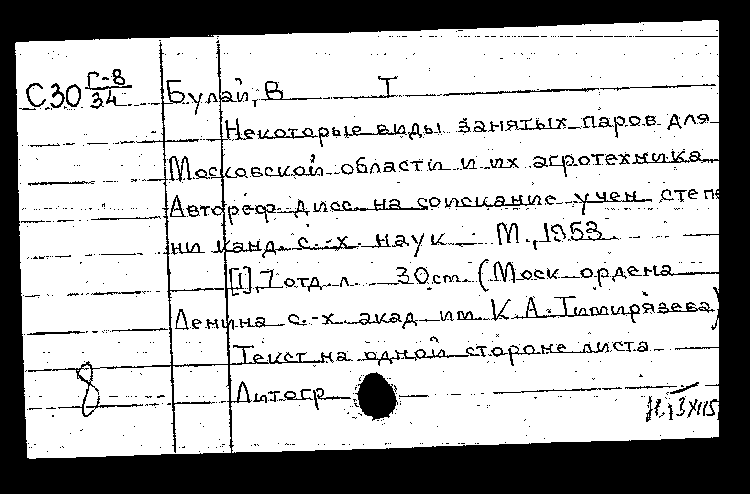 С30 Г-8/34 Булай, В Т
Некоторые виды занятых паров для
Московской области и их агротехника
Автореф. дисс. на соискание учен. степе
ни канд. с.-х. наук М., 1953.
[1], 7 отд. л. 30см. (Моск ордена
Ленина с.-х. акад им. К. А. Тимирязева)
Текст на одной стороне листа
8 Литогр